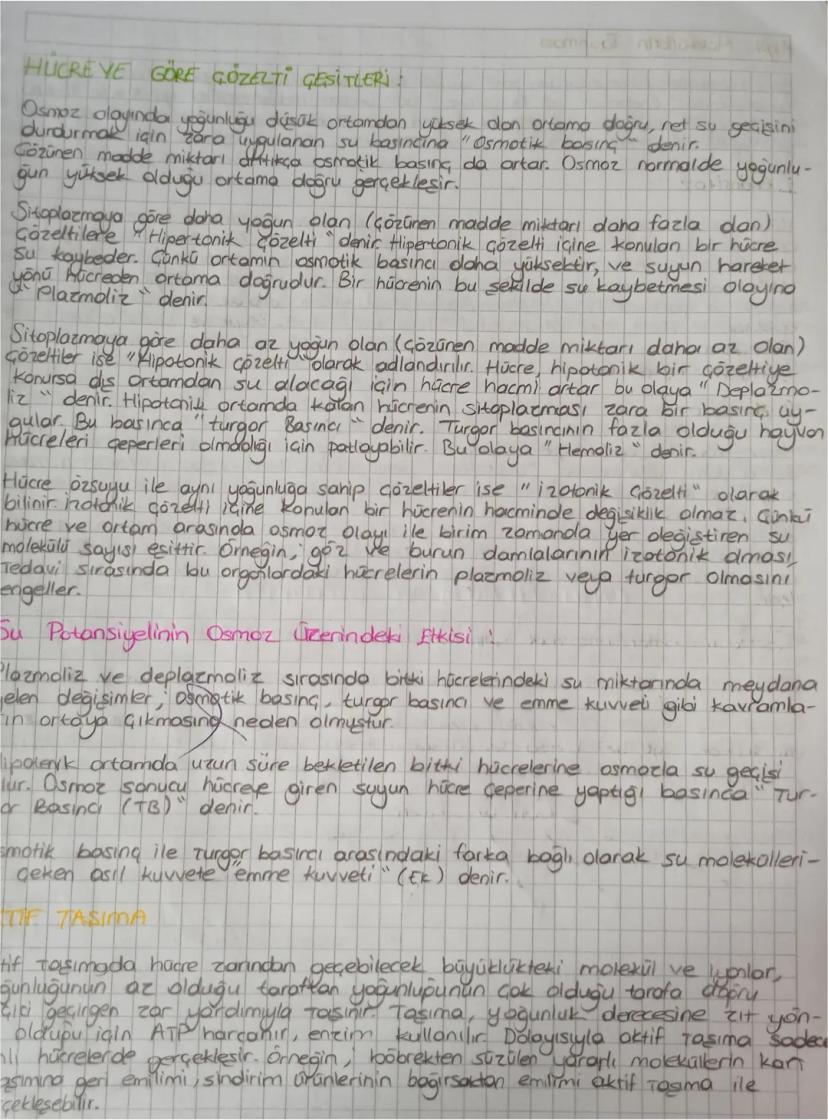 HÜCREYE GÖRE ÇÖZELTİ ÇEŞİTLERİ :
Osmoz olayında yoğunluğu düşük ortamdan yüksek olan ortama doğru, net su geçişini
durdurmak için zara uygulanan su basıncına "Osmotik basınç" denir.
Çözünen madde miktarı arttıkça osmotik basınç da artar. Osmoz normalde yoğunlu-
ğun yüksek olduğu ortama doğru gerçekleşir.
Sitoplazmaya göre daha yoğun olan (çözünen madde miktarı daha fazla olan)
Çözeltilere "Hipertonik çözelti" denir. Hipertonik çözelti içine konulan bir hücre
su kaybeder. Çünkü ortamın osmotik basıncı daha yüksektir, ve suyun hareket
yönü hücreden ortama doğrudur. Bir hücrenin bu şekilde su kaybetmesi olayına
"Plazmoliz" denir.
Sitoplazmaya göre daha az yoğun olan (çözünen madde miktarı daha az olan)
çözeltiler ise "Hipotonik çözelti" olarak adlandırılır. Hücre, hipotonik bir çözeltiye
konursa dış ortamdan su alacağı için hücre hacmi artar bu olaya "Deplazmo-
liz" denir. Hipotonik ortamda kalan hücrenin sitoplazması zara bir basınç uy-
gular. Bu basınca "turgor Basıncı" denir. Turgor basıncının fazla olduğu hayvan
hücreleri çeperleri olmadığı için patlayabilir. Bu olaya "Hemoliz" denir.
Hücre özsuyu ile aynı yoğunluğa sahip çözeltiler ise "izotonik çözelti" olarak
bilinir. İzotonik çözelti içine konulan bir hücrenin hacminde değişiklik olmaz. Çünkü
hücre ve ortam arasında osmoz olayı ile birim zamanda yer değiştiren su
molekülü sayısı eşittir. Örneğin, göz ve burun damlalarının izotonik olması,
Tedavi sırasında bu organlardaki hücrelerin plazmoliz veya turgor olmasını
engeller.
Su Potansiyelinin Osmoz Üzerindeki Etkisi :
Plazmoliz ve deplazmoliz sırasında bitki hücrelerindeki su miktarında meydana
gelen değişimler, osmotik basınç, turgor basıncı ve emme kuvveti gibi kavramla-
ın ortaya çıkmasına neden olmuştur.
ortamda uzun süre bekletilen bitki hücrelerine osmozla su geçişi
lur. Osmoz sonucu hücreye giren suyun hücre çeperine yaptığı basınca "Tur-
or Basıncı (TB)" denir.
smotik basınç ile Turgor basıncı arasındaki farka bağlı olarak su molekülleri-
çeken asıl kuvvete "emme kuvveti" (Ek) denir.
TİF TAŞIMA
tif Taşımada hücre zarından geçebilecek büyüklükteki molekül ve iyonlar,
ğunluğunun az olduğu taraftan yoğunluğunun çok olduğu tarafa doğru
çici geçirgen zar yardımıyla taşınır. Taşıma, yoğunluk derecesine zıt yön-
olduğu için ATP harcanır, enzim kullanılır. Dolayısıyla aktif Taşıma sadece
lı hücrelerde gerçekleşir. Örneğin, böbrekten süzülen yararlı moleküllerin kan
asımına geri emilimi, sindirim ürünlerinin bağırsaktan emilimi aktif Taşıma ile
çekleşebilir.